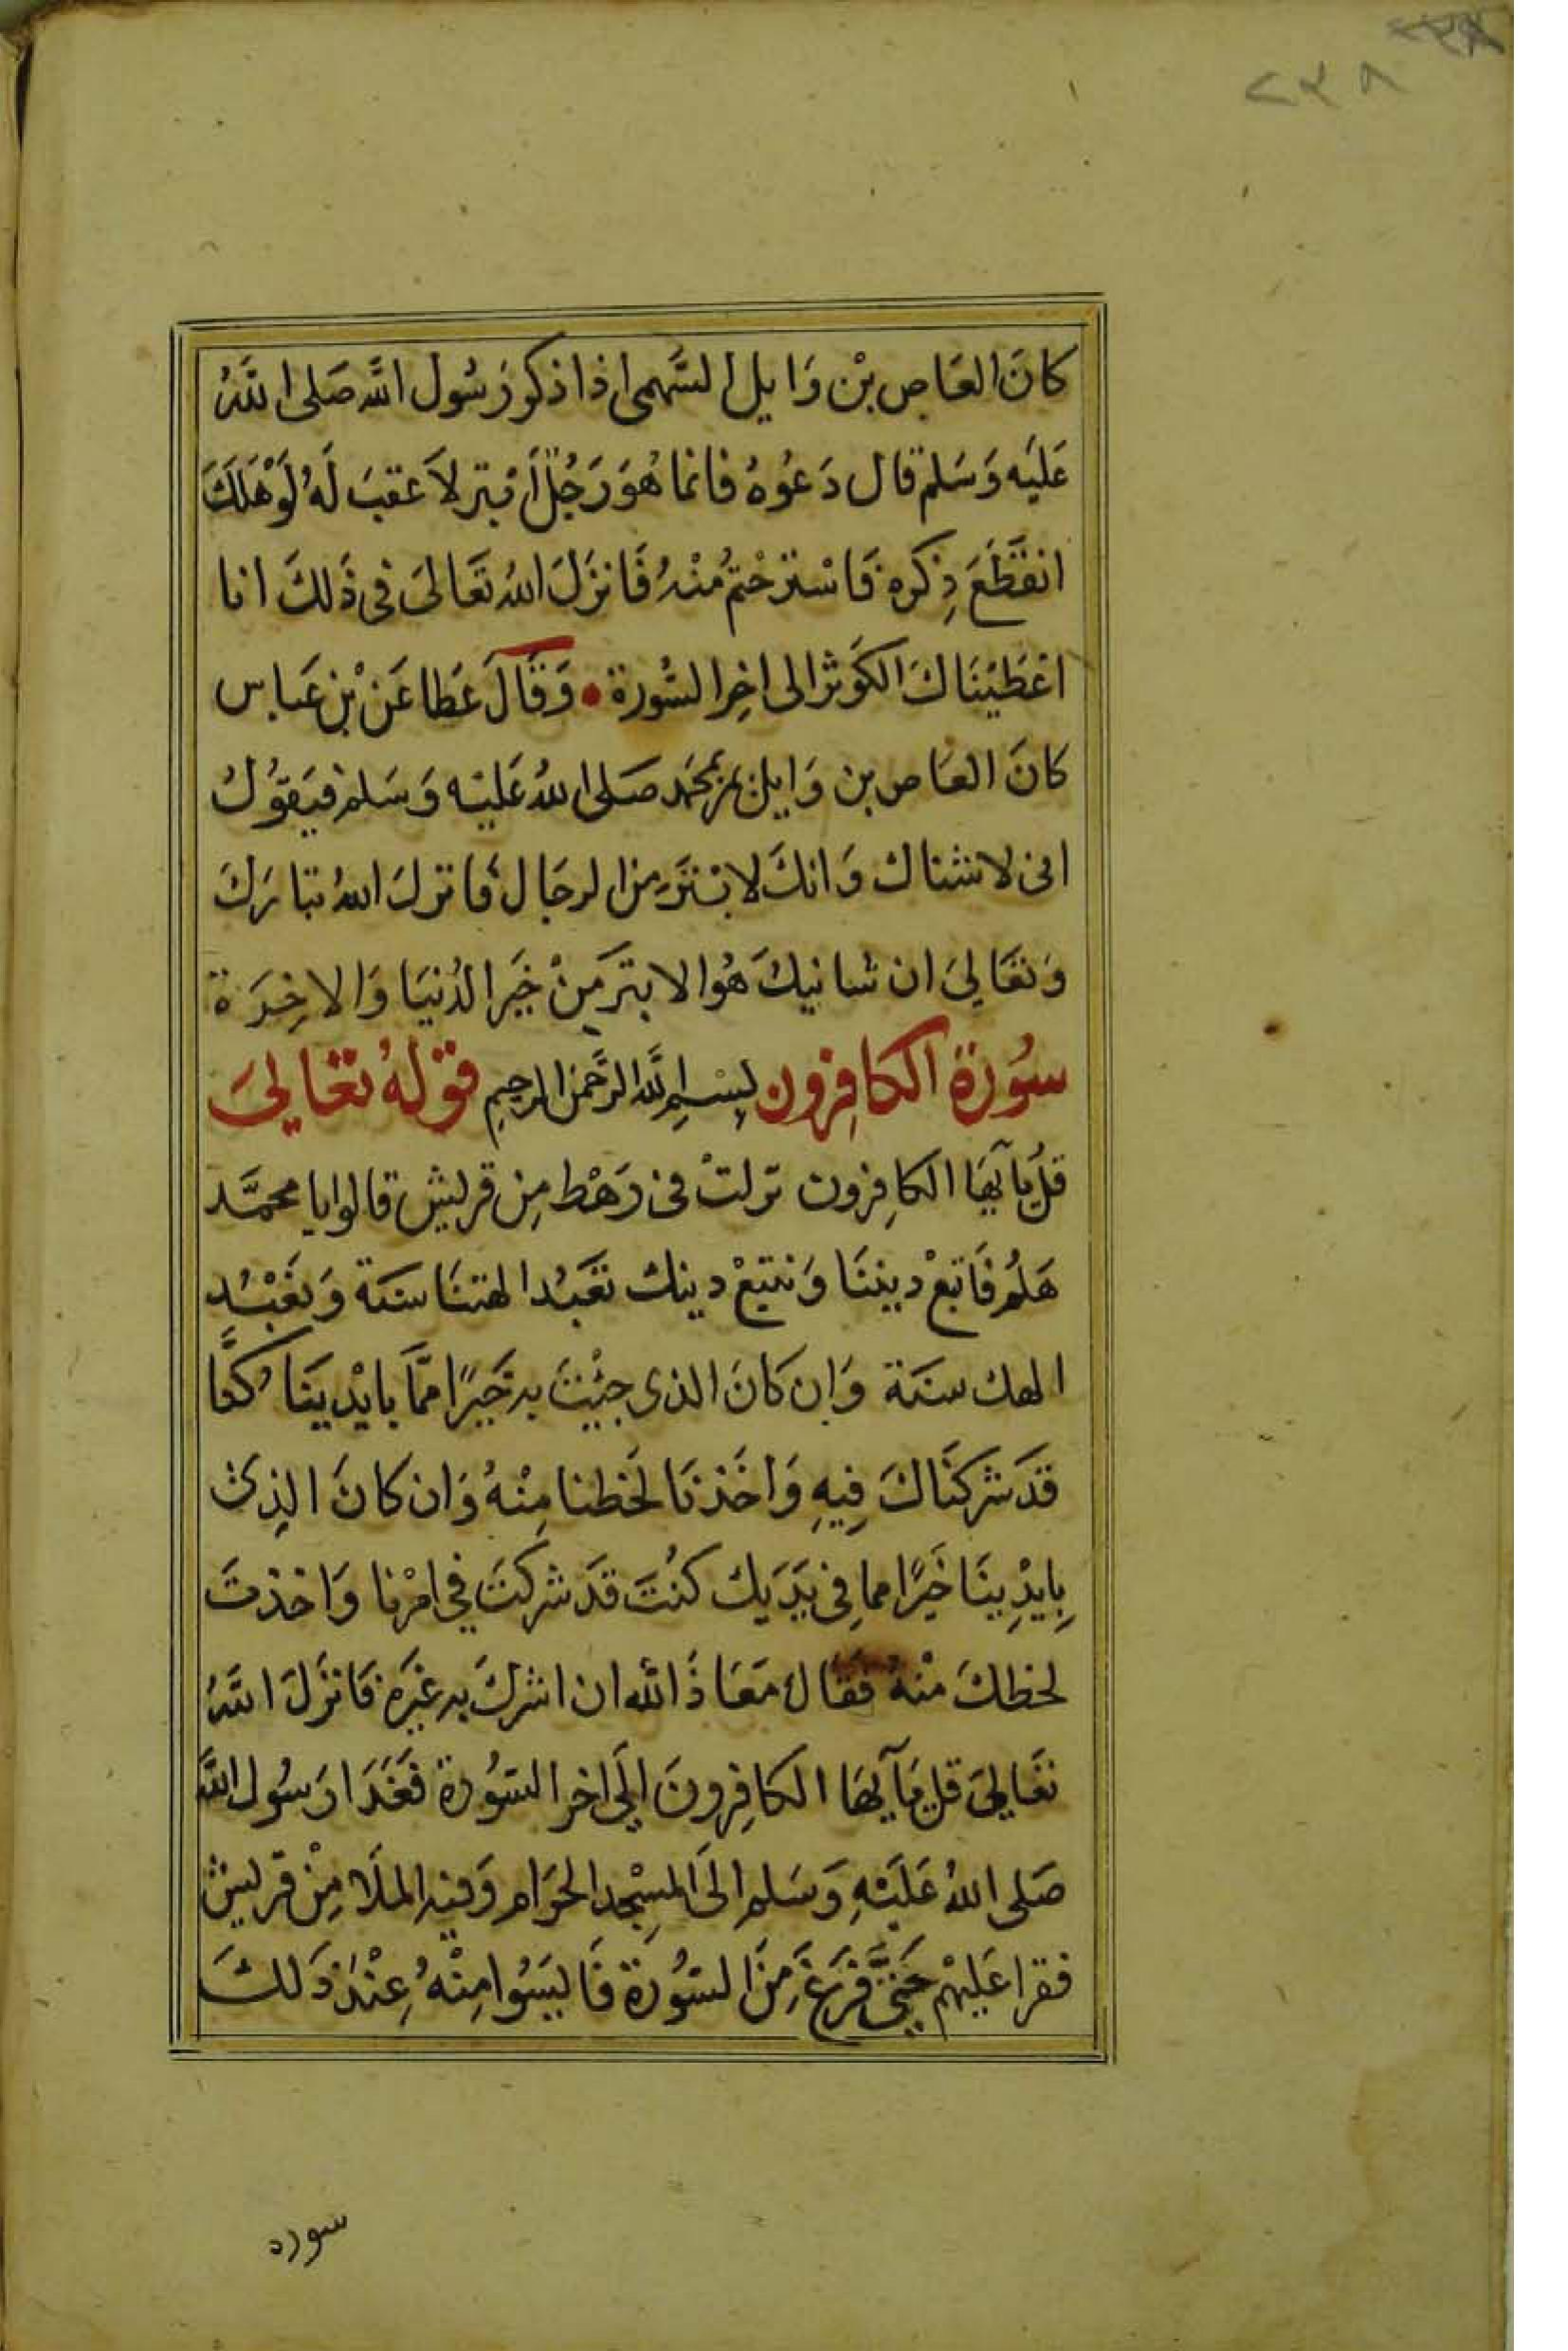 ٢٣٨
كانَ العَاص بْن وَايل السَّهمى اذا ذكر رَسُول الله صَلى اللهُ
عَليَه وَسَلم قال دَعُوهُ فانما هُوَ رَجُلٌ اَبْتر لاَ عَقبَ لَهُ لَوْهَلَكَ
انقَطَعَ ذِكره فَاسْترحْتُم منْهُ فَانزَلَ اللهُ تعَالىَ فى ذَلكَ انا
اعْطَيْنَاكَ الكَوثرَ الى اخِر السُّورة • وَقَالَ عَطا عَنْ بْن عَباس
كانَ العَاص بن وَايل يمر بمحَمد صَلى اللهُ عَليْه وَسَلم فيَقوُلُ
انى لاشناك وَانكَ لابْتَر مِن الرجَال فانزلَ اللهُ تبَارَكَ
وَتعَالىَ ان شانيكَ هُوالابتر مِنْ خَير الدُنيَا وَالاخِرَة
سُورة الكافِرون بِسْمِ اللهِ الرَّحمَن الرحِيمِ قوْلهُ تعَالىَ
قلْ يآ ايهَا الكافِرون نزلتْ فى رَهْط مِن قريش قالوا يا محمَّد
هَلُم فَاتبعْ ديننَا وَنتبعْ دينك تعَبُد الهتنَا سَنَة وَنعْبُد
الهك سنَة وَان كانَ الذى جِئْتَ به خَيرًا ممَّا بايْدينَا كنَّا
قدَ شركنَاكَ فِيهِ وَاخَذنَا لحَظنا مِنْهُ وَان كانَ الذِى
بِايْدِينَا خَيرًا مما فِى يَدَيك كنُتَ قدَ شركتَ فِي امْرنا وَاخذتَ
لحظكَ منْهُ فقَال مَعَاذَ الله ان اشركَ به غَيرَه فَانزَلَ اللهُ
تعَالىَ قل يَآ ايهَا الكافِرونَ الَى اخر السّوُرة فغَدَا رَسُول الله
صَلى اللهُ عَليَهِ وَسَلم الَى المسِجد الحَرَام وَفيه الملَا مِنْ قريش
فقرا عَليْهم حَتىَّ فَرَغَ مِنَ السّوُرة فَاليسَوُا مِنْهُ عِنْدَ ذَلكَ
سوره